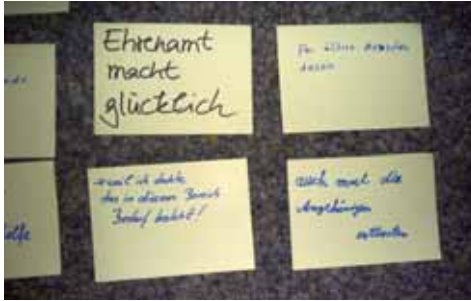 Ehrenamt
macht
glücklich
Für ältere Menschen
→ weil ich dachte
das in diesem Bereich
Bedarf besteht!
auch mal die
Angehörigen
entlasten